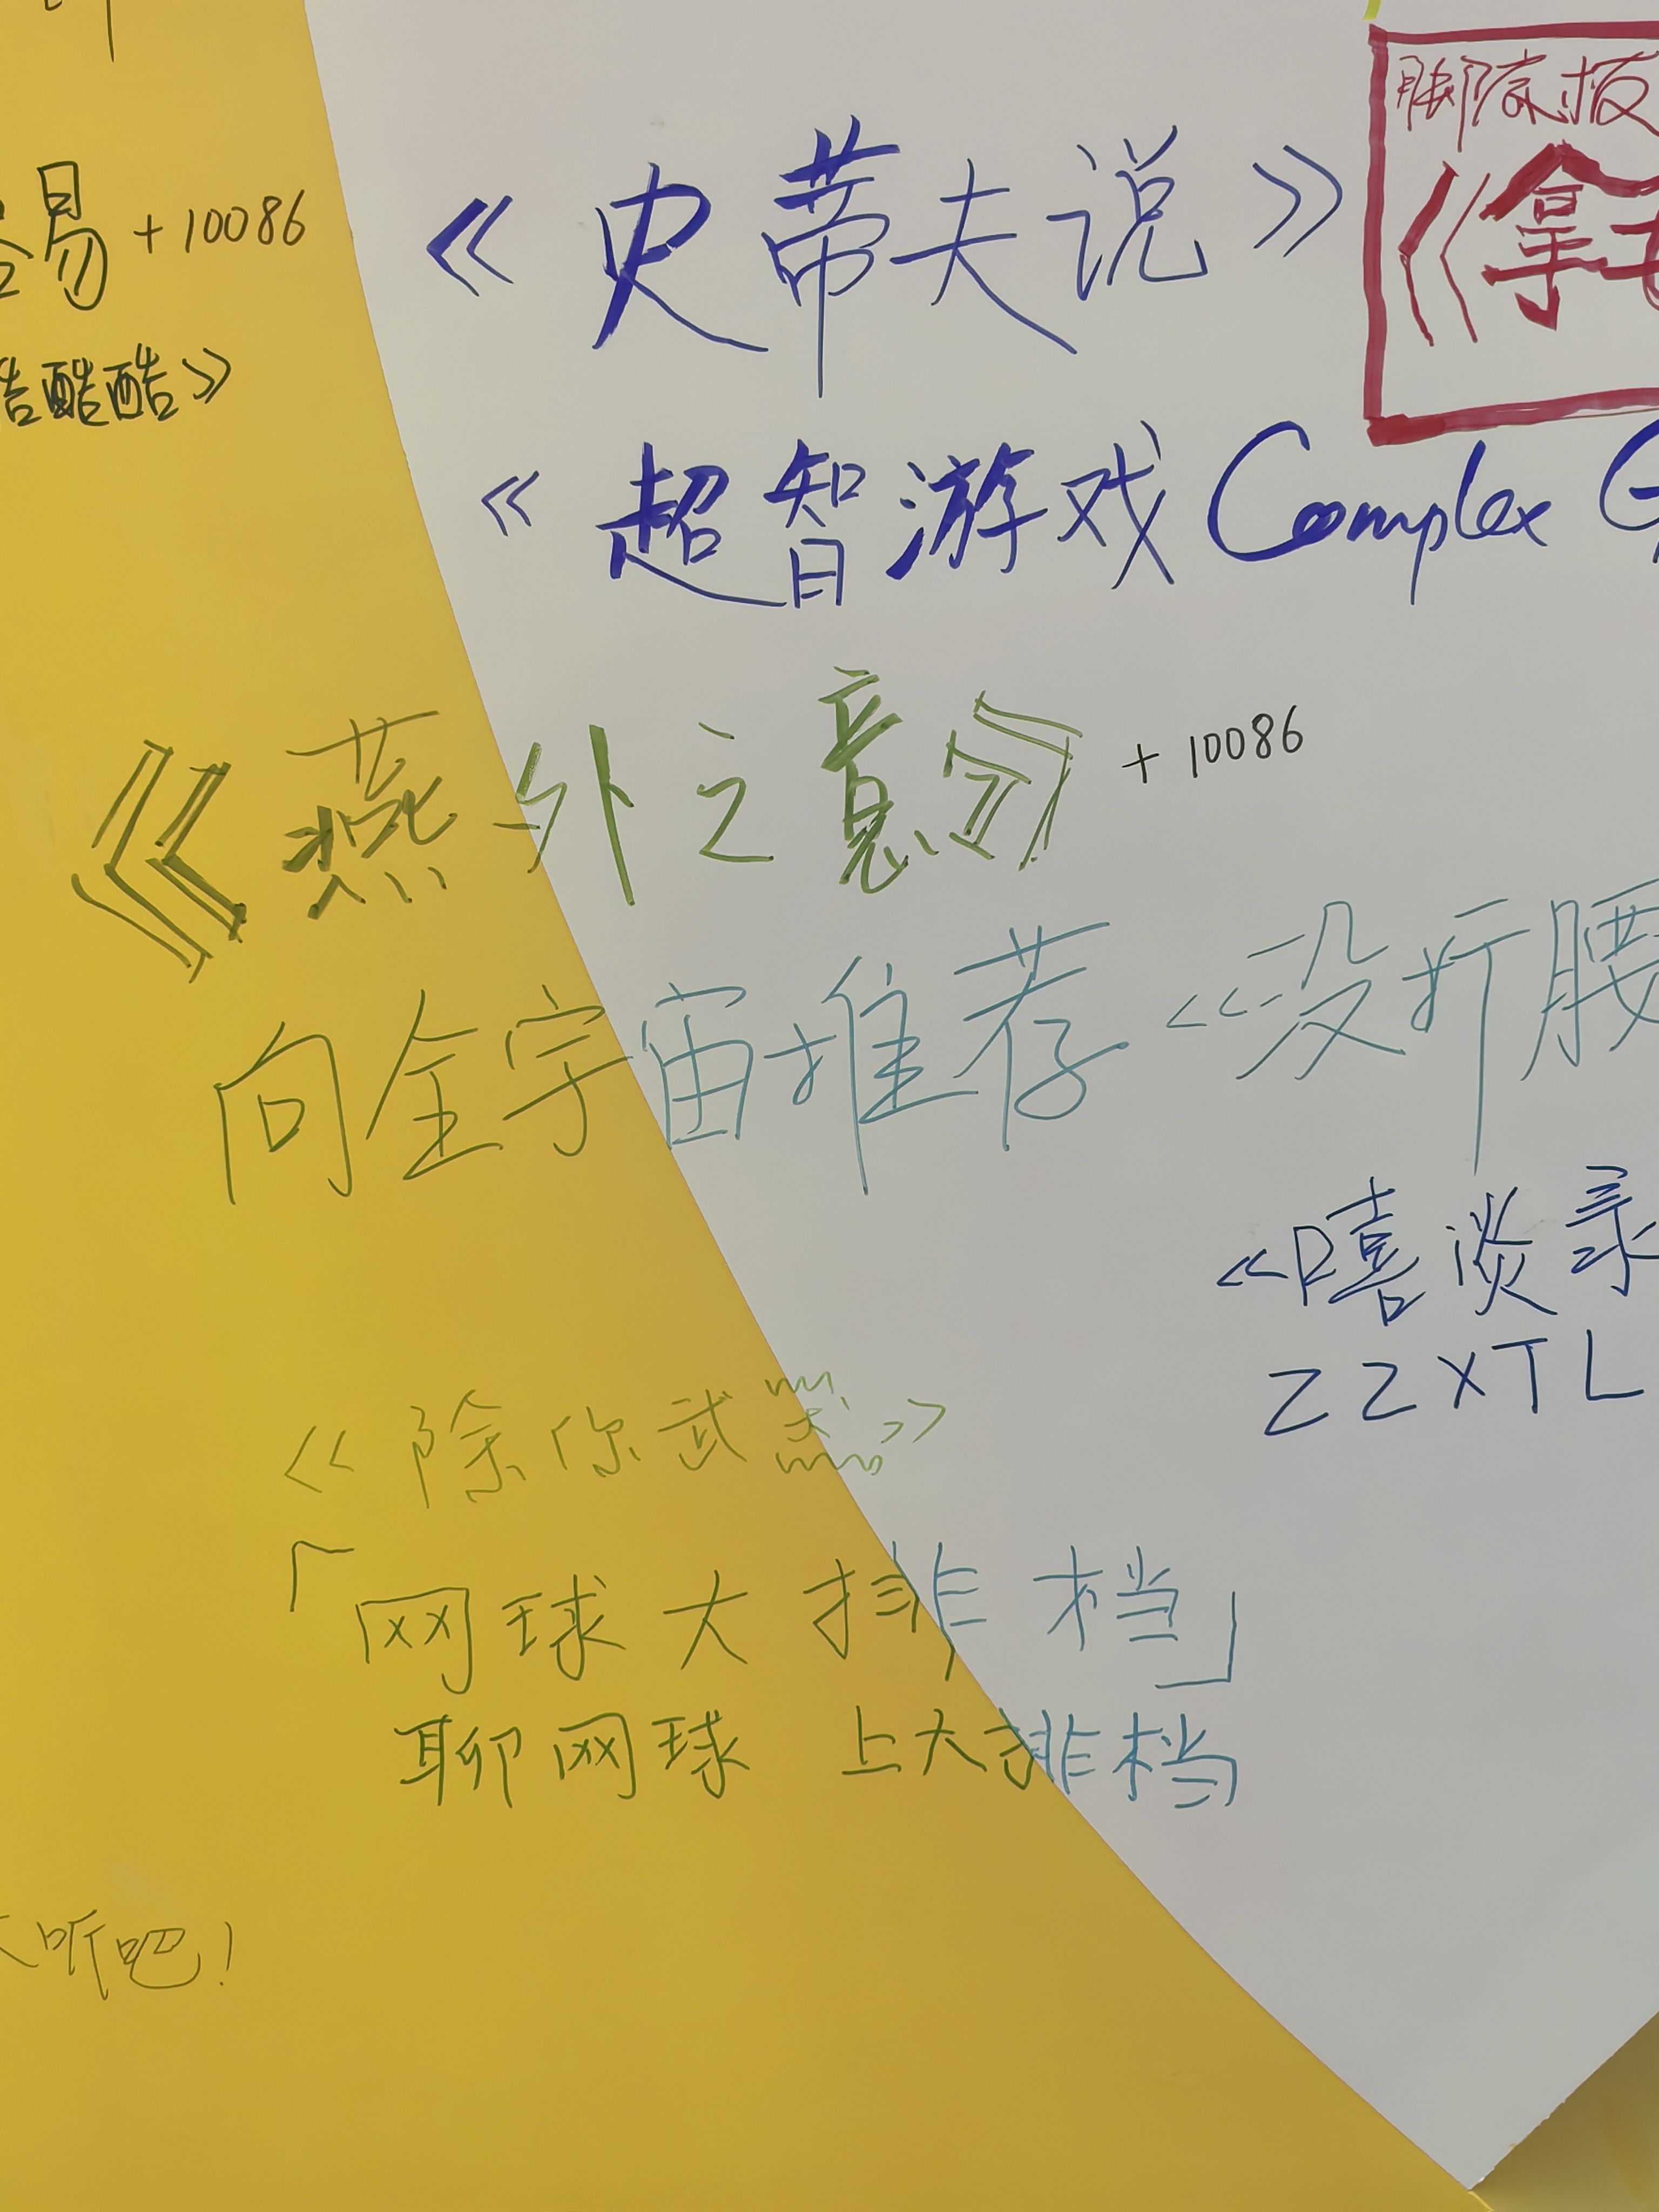 脚底板
易 +10086
《史蒂夫说》
《拿
酷酷》
《超智游戏 Complex G
《燕外之意》 +10086
向全宇宙推荐《没折腰
《嘻谈录
ZZXTL
《除你武器》
「网球大排档」
聊网球 上大排档
听吧！